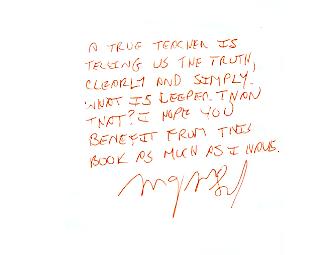 A TRUE TEACHER IS
TELLING US THE TRUTH,
CLEARLY AND SIMPLY.
WHAT IS DEEPER THAN
THAT? I HOPE YOU
BENEFIT FROM THIS
BOOK AS MUCH AS I HAVE.